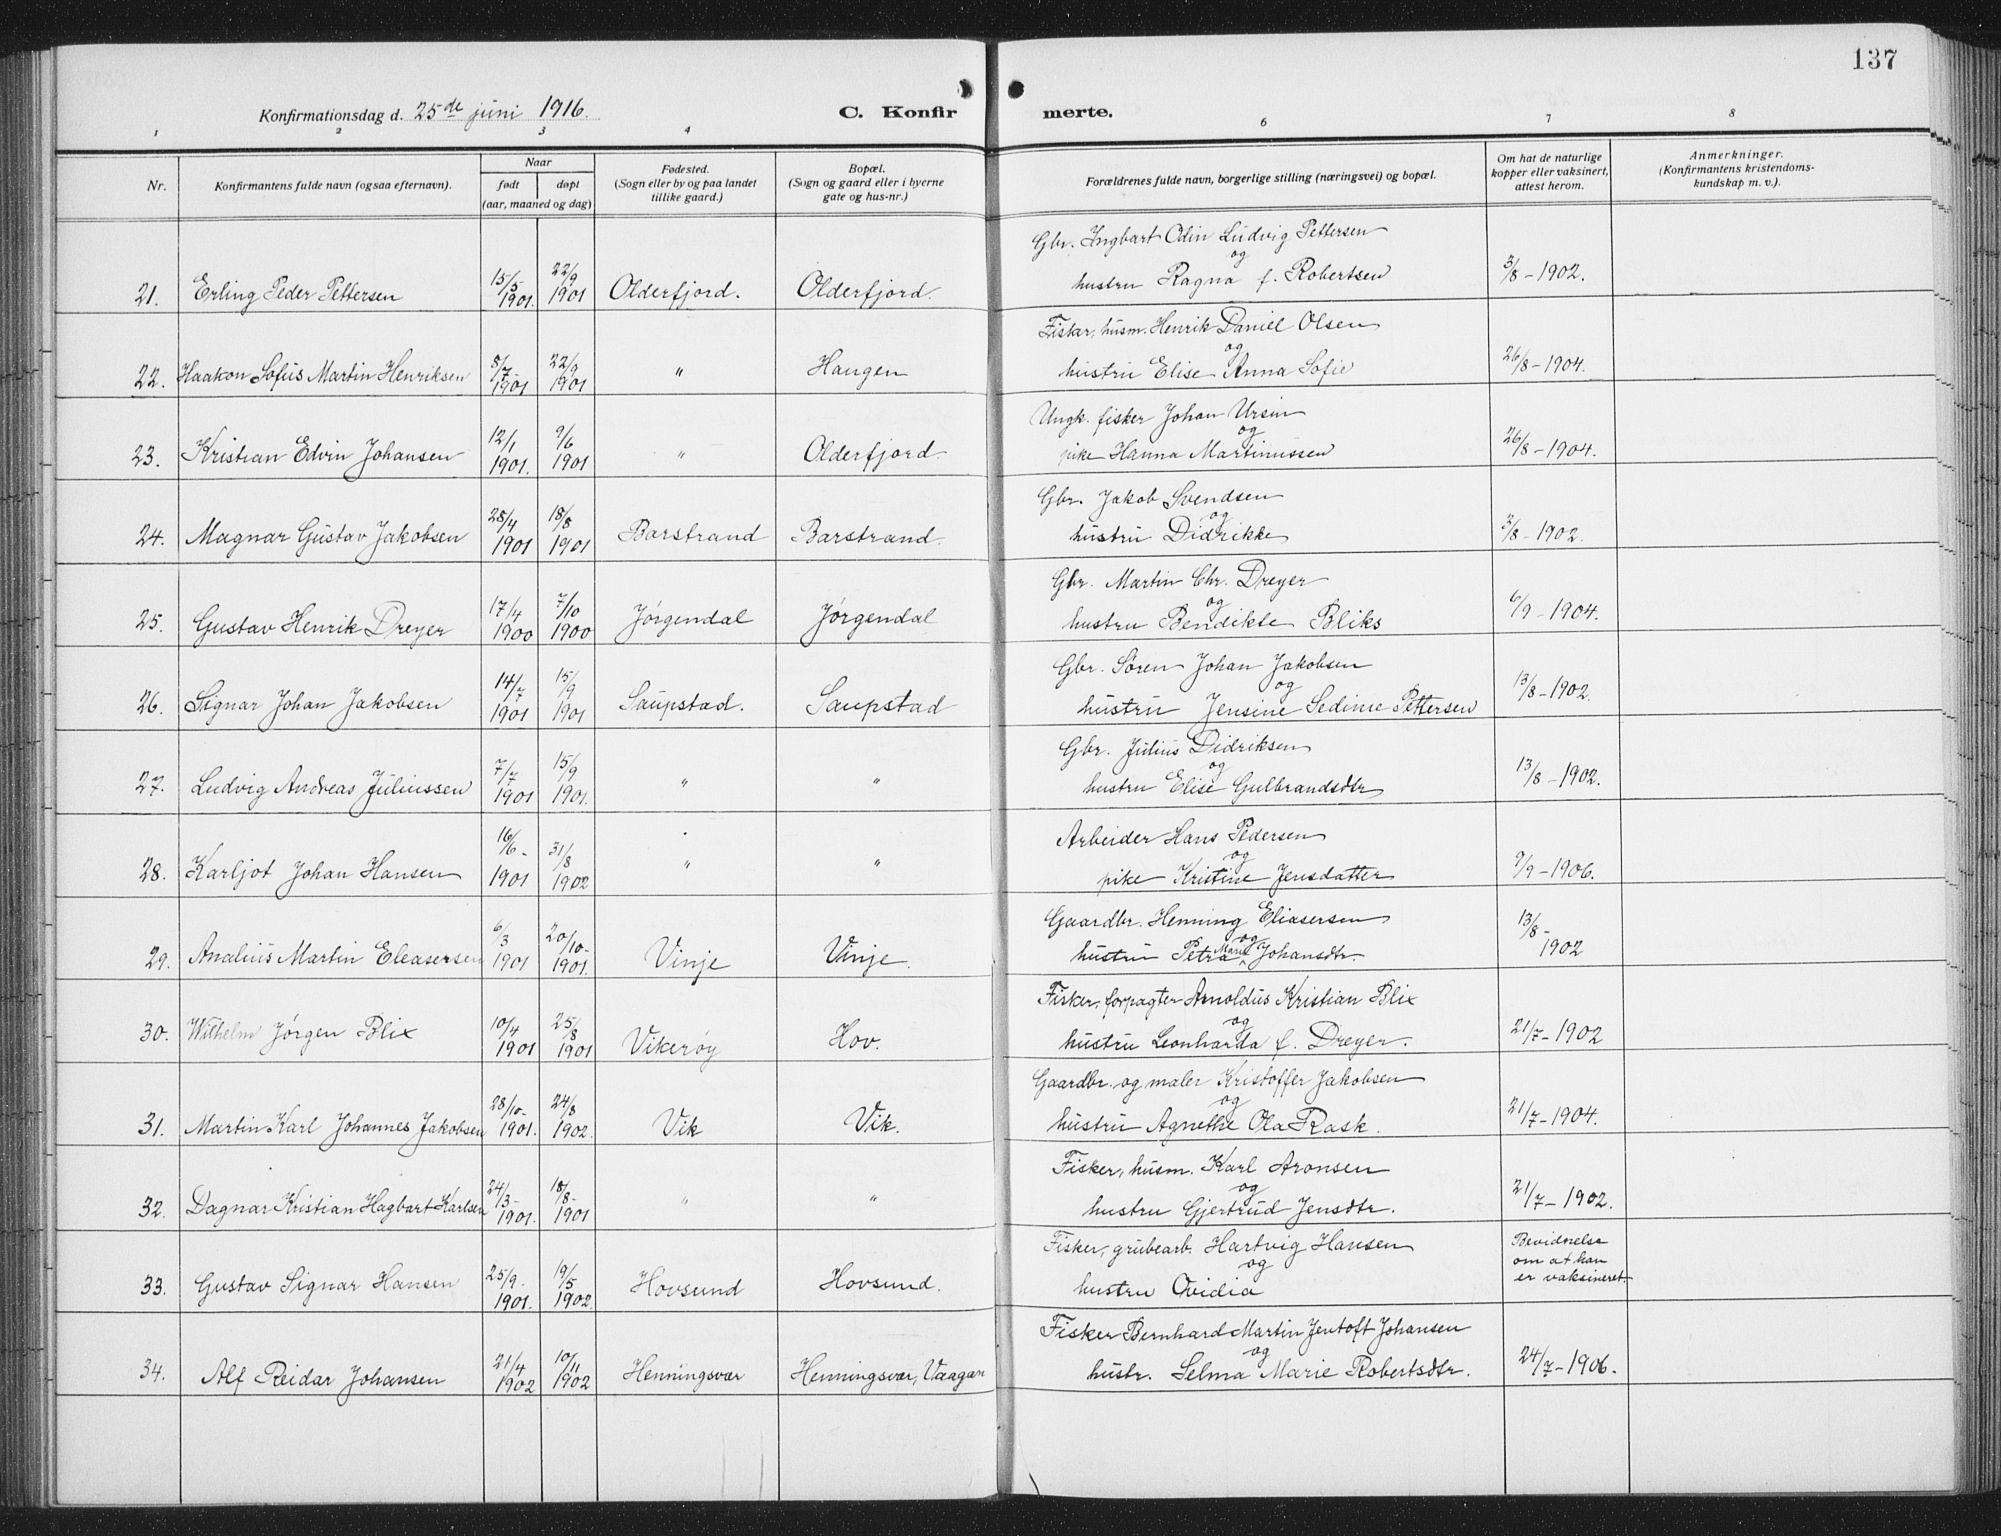 137
Konfirmationsdag d. 25de juni 1916. C. Konfirmerte.
1 2 3 4 6 7 8
Nr. Konfirmantens fulde navn (ogsaa efternavn). Naar født døpt (aar, maaned og dag) Fødested. (Sogn eller by og paa landet tillike gaard.) Bopæl. (Sogn og gaard eller i byerne gate og hus-nr.) Forældrenes fulde navn, borgerlige stilling (næringsvei) og bopæl. Om hat de naturlige kopper eller vaksinert, attest herom. Anmerkninger. (Konfirmantens kristendomskundskap m. v.).
Gbr. Ingbart Odin Ludvig Pettersen
og
21. Erling Peder Pettersen 15/5 1901. 22/9 1901 Olderfjord. Olderfjord. hustru Ragna f. Robertsen 3/8 - 1902.
Fisker, husm. Henrik Daniel Olsen
og
22. Haakon Sofus Martin Henriksen 5/7 - 1901 22/9 1901 " Haugen hustru Elise Anna Sofie 26/8 - 1904.
Ungk. fisker Johan Ursin
og
23. Kristian Edvin Johansen 12/1 1901. 9/6 1901 " Olderfjord pike Hanna Martinussen 26/8 - 1904.
Gbr. Jakob Svendsen
og
24. Magnar Gustav Jakobsen 28/4 1901 18/8 1901 Barstrand Barstrand. hustru Didrikke 3/8 - 1902.
Gbr. Martin Chr. Dreyer
og
25. Gustav Henrik Dreyer 17/4 1900 7/10 1900 Jørgendal Jørgendal hustru Bendikte Bliks 6/9 - 1904.
Gbr. Søren Johan Jakobsen
og
26. Signar Johan Jakobsen 14/7 1901 15/9 1901 Saupstad. Saupstad hustru Jensine Sedinie Pettersen 13/8 - 1902.
Gbr. Julius Didriksen
og
27. Ludvig Andreas Juliussen 7/7 1901 15/9 1901. " " hustru Elise Gulbrandsdtr 13/8 - 1902.
Arbeider Hans Pedersen
og
28. Karljot Johan Hansen 16/6 - 1901 31/8 1902 " " pike Kristine Jensdatter 9/9 - 1906.
Gaardbr. Henning Eliasersen
og
29. Analius Martin Eleasersen 6/3 1901 20/10 - 1901. Vinje Vinje. hustru Petra Marie Johansdtr. 13/8 - 1902
Fisker, forpagter Arnoldus Kristian Blix
og
30. Wilhelm Jørgen Blix 10/4 1901 25/8 1901 Vikerøy Hov. hustru Leonharda f. Dreyer. 21/7 - 1902
Gaardbr. og maler Kristoffer Jakobsen
og
31. Martin Karl Johannes Jakobsen 28/10 - 1901. 24/8 1902. Vik Vik. hustru Agnethe Ola Rask. 21/7 - 1904.
Fisker, husm. Karl Aronsen
og
32. Dagnar Kristian Hagbart Karlsen 24/3 - 1901. 18/8 - 1901 " " hustru Gjertrud Jensdtr. 21/7 - 1902.
Fisker, grubearb. Hartvig Hansen
og
33. Gustav Signar Hansen 25/9 - 1901. 19/5 1902. Hovsund Hovsund. hustru Ovidia Bevidnelse om at han er vaksineret
Fisker Bernhard Martin Jentoft Johansen
og
34. Alf Reidar Johansen 21/4 1902 10/11 1902 Henningsvær Henningsvær, Vaagan hustr. Selma Marie Robertsdtr. 24/7 - 1906.